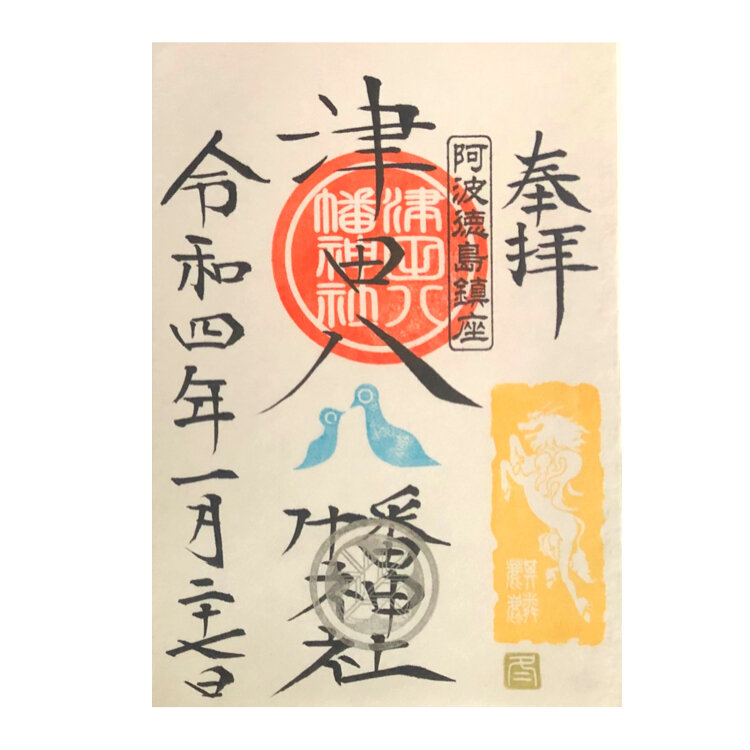 奉拝
阿波徳島鎮座
津田八幡神社
津田八
幡神社
令和四年一月二十七日